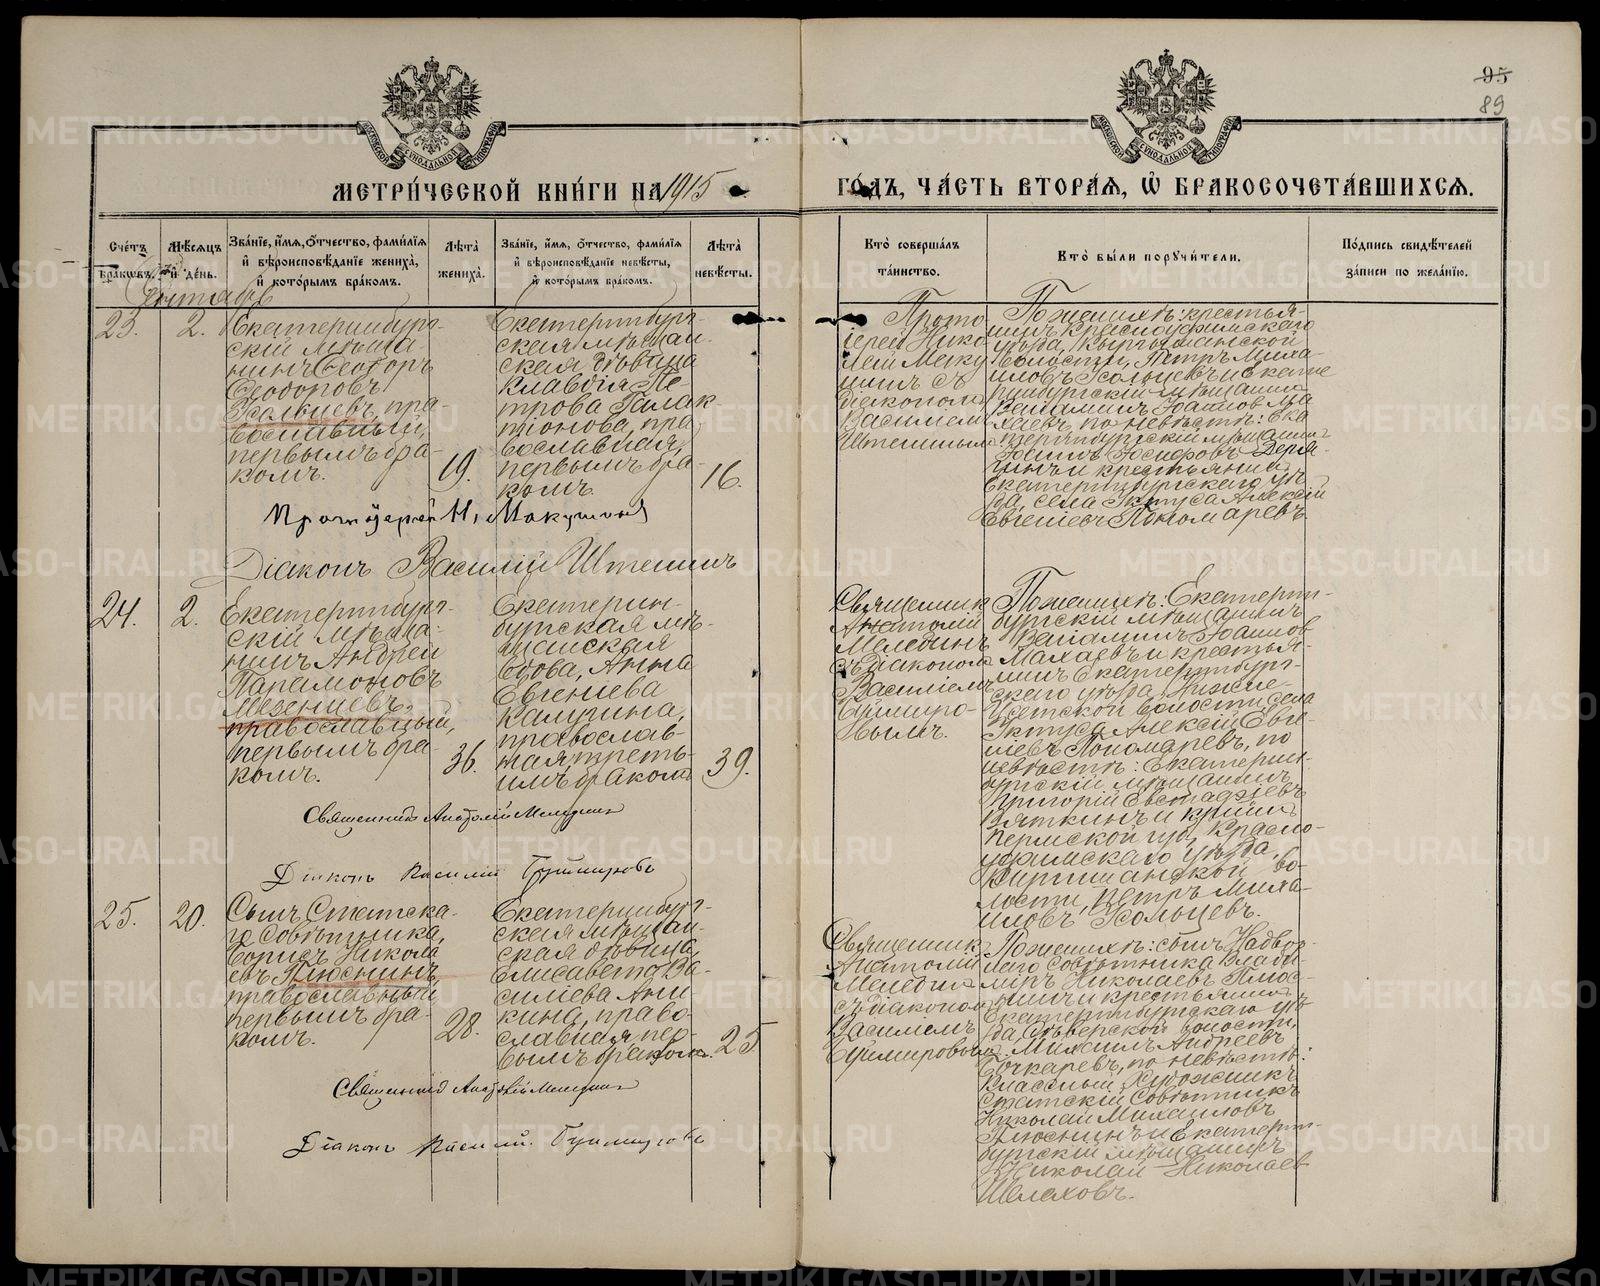 95
89
МЕТРИ́ЧЕСКОЙ КНИ́ГИ НА 1915
ГО́ДЪ, ЧА́СТЬ ВТОРА́Я, Ѡ҆ БРАКОСОЧЕТА́ВШИХСЯ.
Сче́тъ бра́ковъ.
Мѣ́сяцъ и҆ де́нь.
Зва́нїе, и҆́мя, ѻ҆́тчество, фами́лїя
и҆ вѣроисповѣ́данїе жениха̀,
и҆ кото́рымъ бра́комъ.
Лѣ́та̀
жениха̀.
Зва́нїе, и҆́мя, ѻ҆́тчество, фами́лїя
и҆ вѣроисповѣ́данїе невѣ́сты,
и҆ кото́рымъ бра́комъ.
Лѣ́та̀
невѣ́сты.
Кто̀ соверша́лъ
та́инство.
Кто̀ бы́ли порꙋчи́тели.
По́дпись свидѣ́телей
за́писи по жела́нїю.
23.
2.
Екатеринбург-
скій мѣща-
нинъ Ѳеодоръ
Ѳеодоровъ
Усольцевъ, пра-
вославный,
первымъ бра-
комъ.
19.
Екатеринбург-
ская мѣщан-
ская дѣвица
Клавдія Пе-
трова Галак
тіонова, пра
вославная,
первымъ бра-
комъ.
16.
Прото
іерей Нико
лай Мяку
шинъ съ
діакономъ
Василіем
Штениным
По женихѣ: крестья-
нинъ Красноуфимскаго
уѣзда, Кыргишанской
волости, Петръ Миха-
иловъ Усольцевъ и Екате
ринбургскій мѣщанинъ
Веніаминъ Іоанновъ Ма
хаевъ, по невѣстѣ: Ека
теринбургскій мѣщанинъ
Іоаннъ Іосифовъ Деря-
гинъ и крестьянинъ
Екатеринбургскаго уѣ
зда, села Уктуса Алексій
Евгеніевъ Пономаревъ.
Протоіерей Н. Мякушинъ
Діаконъ Василій Штенинъ
24.
2.
Екатеринбург-
скій мѣща-
нинъ Андрей
Парамоновъ
Мезенцевъ,
православный,
первымъ бра-
комъ.
36.
Екатерин-
бургская мѣ-
щанская
вдова, Анна
Евгеніева
Калугина,
православ-
ная, треть-
имъ бракомъ
39.
Священник
Анатолій
Меледин
съ діакономъ
Василіемъ
Будимиро-
вымъ.
По женихѣ: Екатерин-
бургскій мѣщанинъ
Веніаминъ Іоаннов
Махаевъ и крестья-
нинъ Екатеринбург-
скаго уѣзда, Нижне-
Исетской волости села
Уктуса Алексій Евге-
ніевъ Пономаревъ, по
невѣстѣ: Екатерин-
бургскій мѣщанинъ
Григорій Евстафіевъ
Вяткинъ и кр-нинъ
Пермской губ. Красно-
уфимскаго уѣзда,
Киргишанской во-
лости, Петръ Миха-
иловъ Усольцевъ.
Священникъ Анатолій Меледин
Діаконъ Василій Будимировъ
25.
20.
Сынъ Статска-
го Совѣтника,
Борисъ Никола
евъ Плюснинъ,
православный
первымъ бра-
комъ.
28.
Екатеринбург-
ская мѣщан-
ская дѣвица,
Елисавета Ва-
силіева Ани-
кина, право-
славная, пер-
вымъ бракомъ.
25
Священник
Анатолій
Меледин
съ діаконом
Василіемъ
Будимировым
По женихѣ: сынъ Надвор-
наго Совѣтника Влади-
миръ Николаевъ Плюс-
нинъ и крестьянинъ
Екатеринбургскаго уѣ
зда,
волости,
Михаилъ Андреевъ
Бочкаревъ, по невѣстѣ:
Классный Художникъ
Статскій Совѣтникъ
Николай Михаиловъ
Плюснинъ и Екатерин-
бургскій мѣщанинъ
Николай Николаев
Шелаховъ.
Священникъ Анатолій Меледин
Діаконъ Василій Будимировъ
METRIKI.GASO-URAL.RU